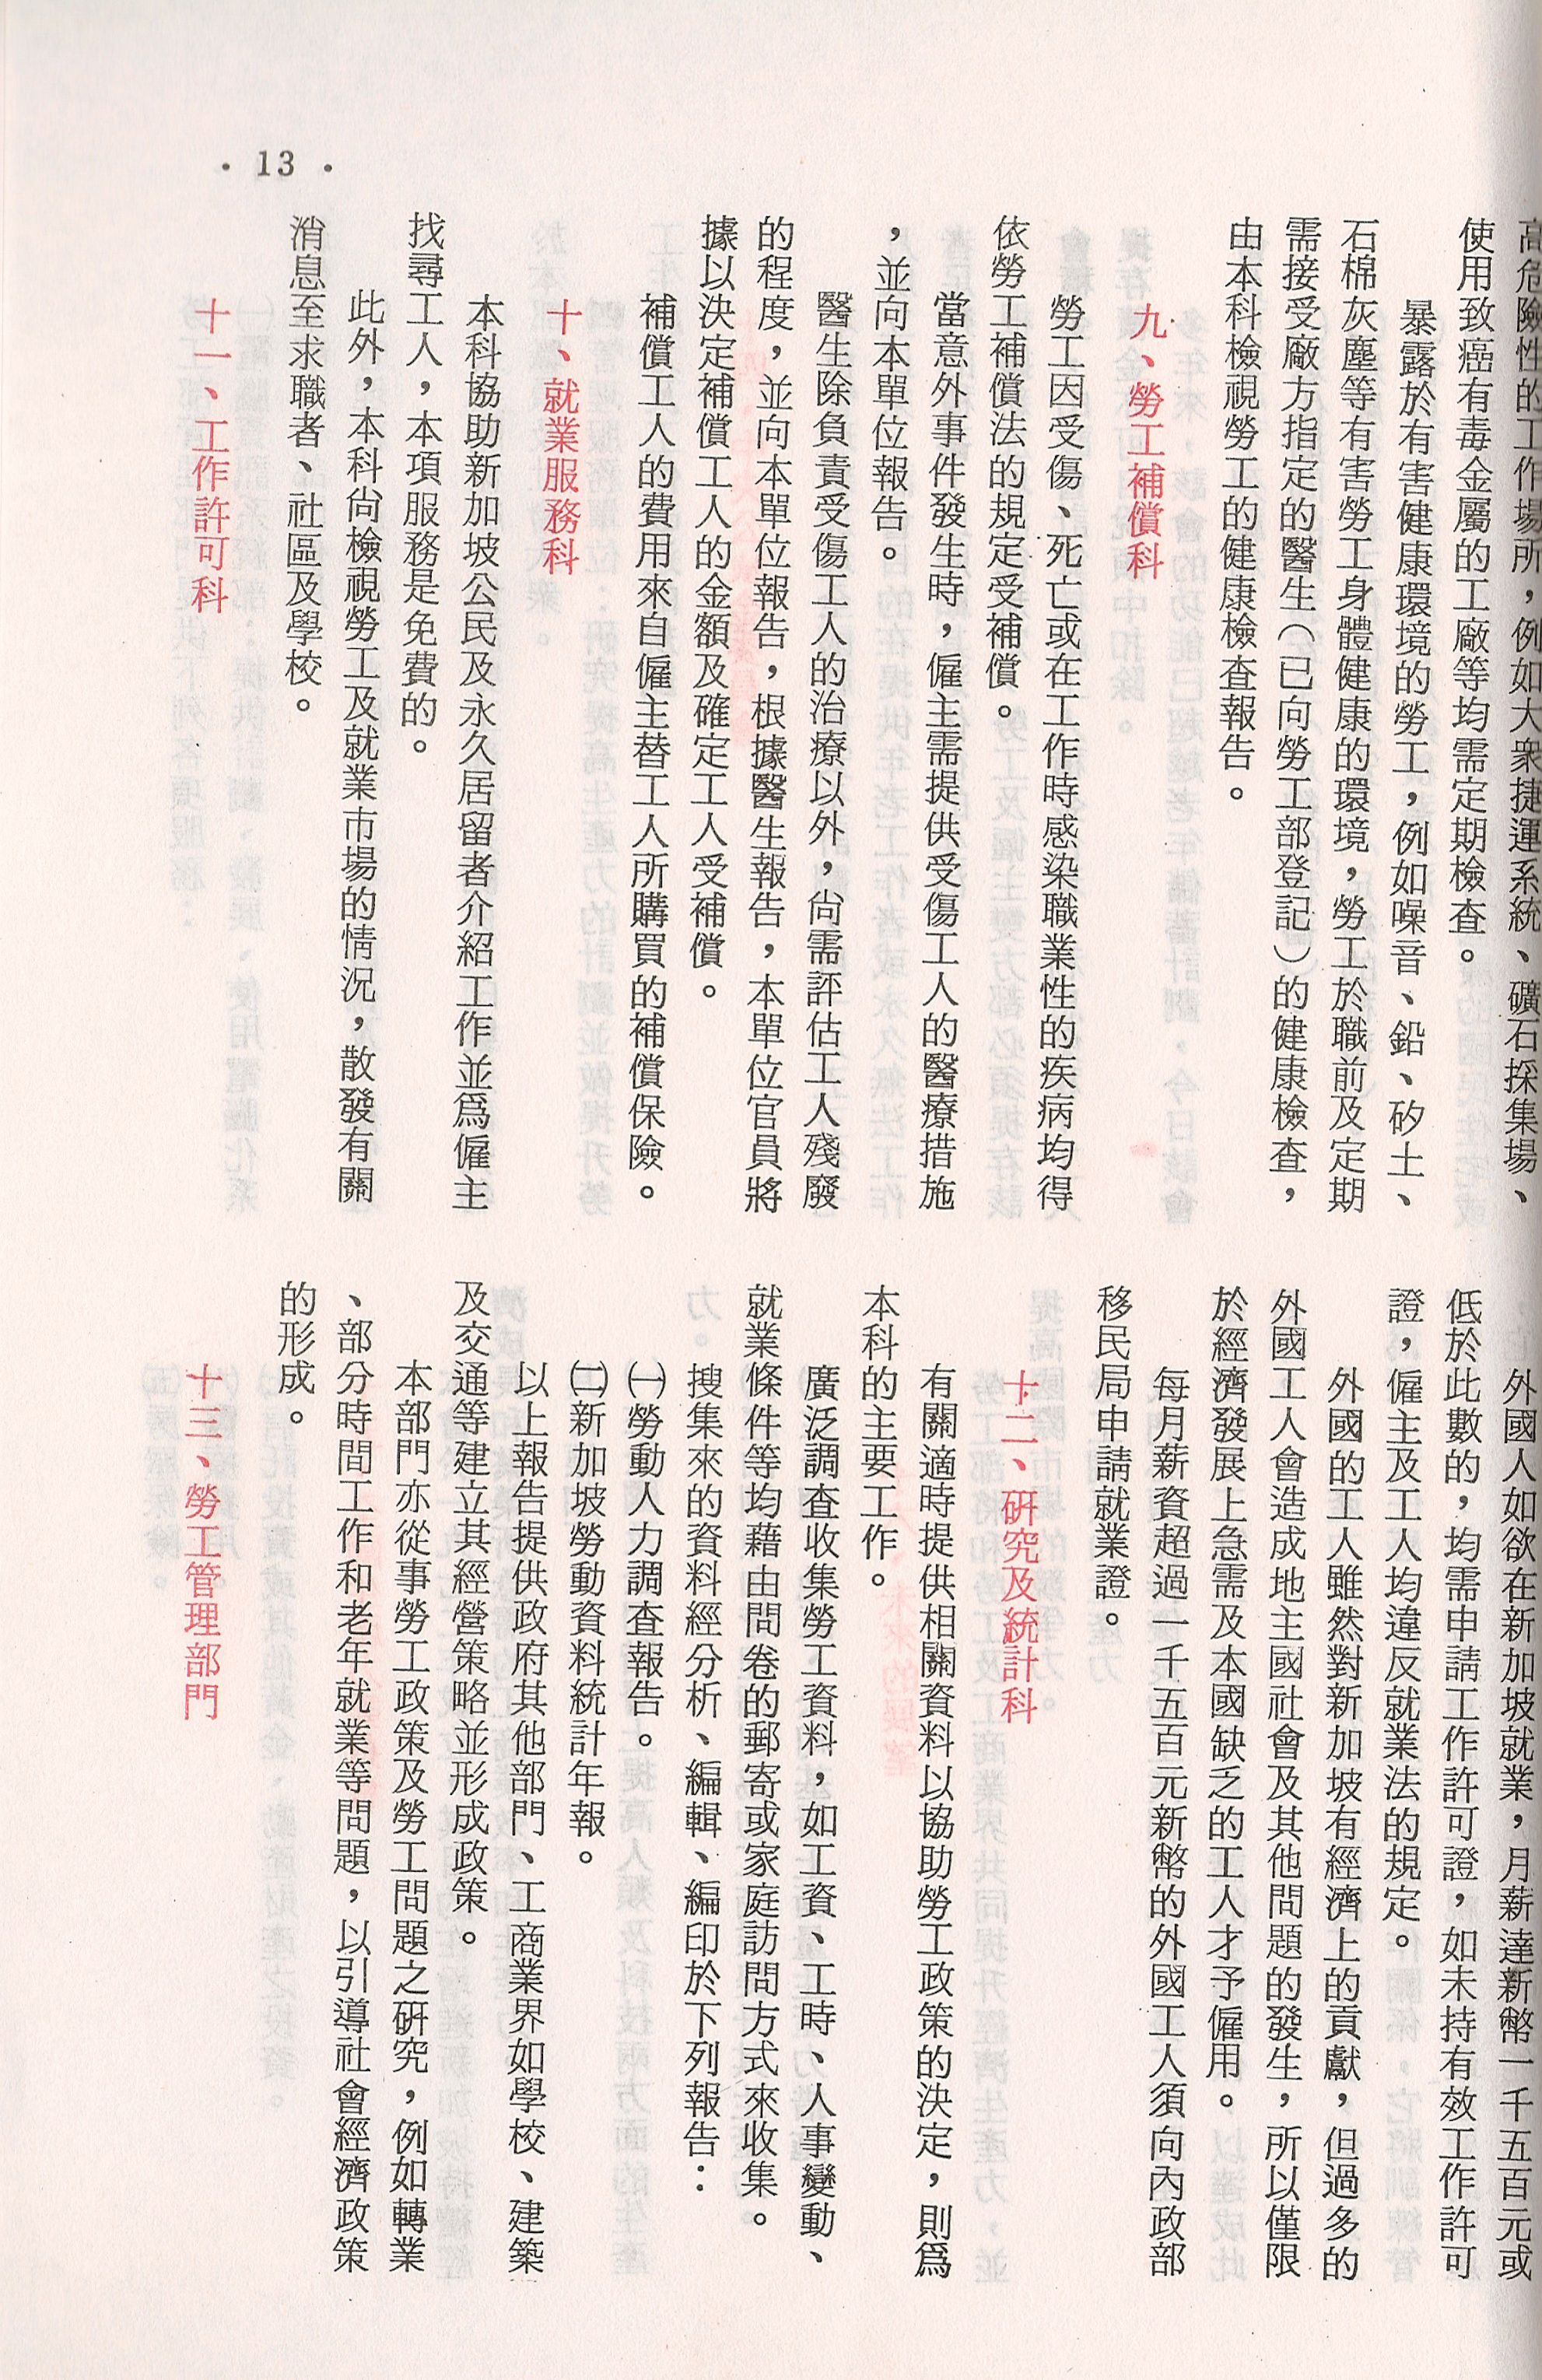 高危險性的工作場所，例如大衆捷運系統、礦石採集場、
使用致癌有毒金屬的工廠等均需定期檢查。
暴露於有害健康環境的勞工，例如噪音、鉛、矽土、
石棉灰塵等有害勞工身體健康的環境，勞工於職前及定期
需接受廠方指定的醫生（已向勞工部登記）的健康檢查，
由本科檢視勞工的健康檢查報告。
九、勞工補償科
勞工因受傷、死亡或在工作時感染職業性的疾病均得
依勞工補償法的規定受補償。
當意外事件發生時，僱主需提供受傷工人的醫療措施
，並向本單位報告。
醫生除負責受傷工人的治療以外，尙需評估工人殘廢
的程度，並向本單位報告，根據醫生報告，本單位官員將
據以決定補償工人的金額及確定工人受補償。
補償工人的費用來自僱主替工人所購買的補償保險。
十、就業服務科
本科協助新加坡公民及永久居留者介紹工作並爲僱主
找尋工人，本項服務是免費的。
此外，本科尙檢視勞工及就業市場的情況，散發有關
消息至求職者、社區及學校。
十一、工作許可科
外國人如欲在新加坡就業，月薪達新幣一千五百元或
低於此數的，均需申請工作許可證，如未持有效工作許可
證，僱主及工人均違反就業法的規定。
外國的工人雖然對新加坡有經濟上的貢獻，但過多的
外國工人會造成地主國社會及其他問題的發生，所以僅限
於經濟發展上急需及本國缺乏的工人才予僱用。
每月薪資超過一千五百元新幣的外國工人須向內政部
移民局申請就業證。
十二、研究及統計科
有關適時提供相關資料以協助勞工政策的決定，則爲
本科的主要工作。
廣泛調查收集勞工資料，如工資、工時、人事變動、
就業條件等均藉由問卷的郵寄或家庭訪問方式來收集。
搜集來的資料經分析、編輯、編印於下列報告：
㈠勞動人力調查報告。
㈡新加坡勞動資料統計年報。
以上報告提供政府其他部門、工商業界如學校、建築
及交通等建立其經營策略並形成政策。
本部門亦從事勞工政策及勞工問題之研究，例如轉業
、部分時間工作和老年就業等問題，以引導社會經濟政策
的形成。
十三、勞工管理部門
• 13 •